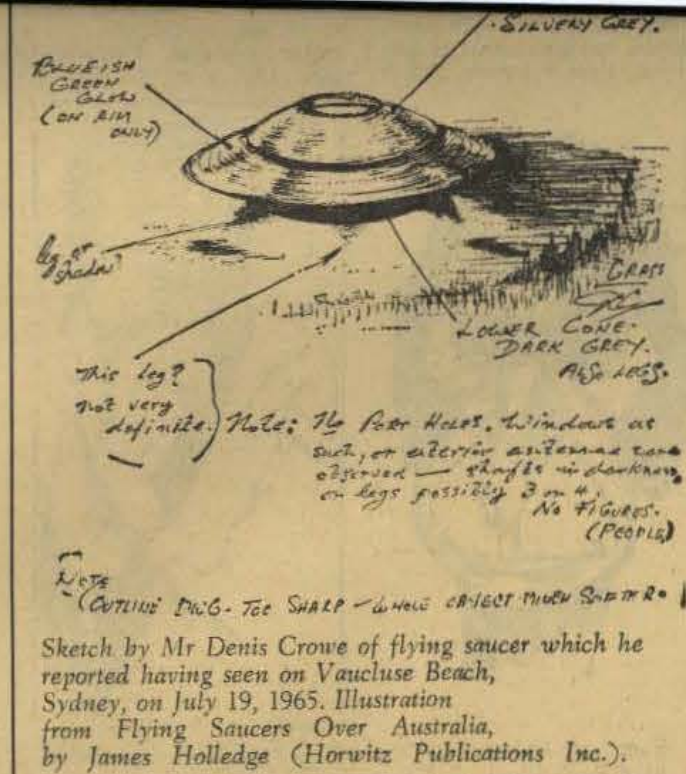 SILVERY GREY.
BLUEISH
GREEN
GLOW
(ON RIM
ONLY)
leg or
shadow?
GRASS
LOWER CONE-
DARK GREY.
ALSO LEGS.
This leg?
not very
definite.
Note: No Port Holes, Windows as
such, or exterior antennae were
observed — in darkness,
on legs possibly 3 or 4.
NO FIGURES.
(PEOPLE)
NOTE
(OUTLINE DWG - TOO SHARP - WHOLE OBJECT MUCH SOFTER.
Sketch by Mr Denis Crowe of flying saucer which he
reported having seen on Vaucluse Beach,
Sydney, on July 19, 1965. Illustration
from Flying Saucers Over Australia,
by James Holledge (Horwitz Publications Inc.).